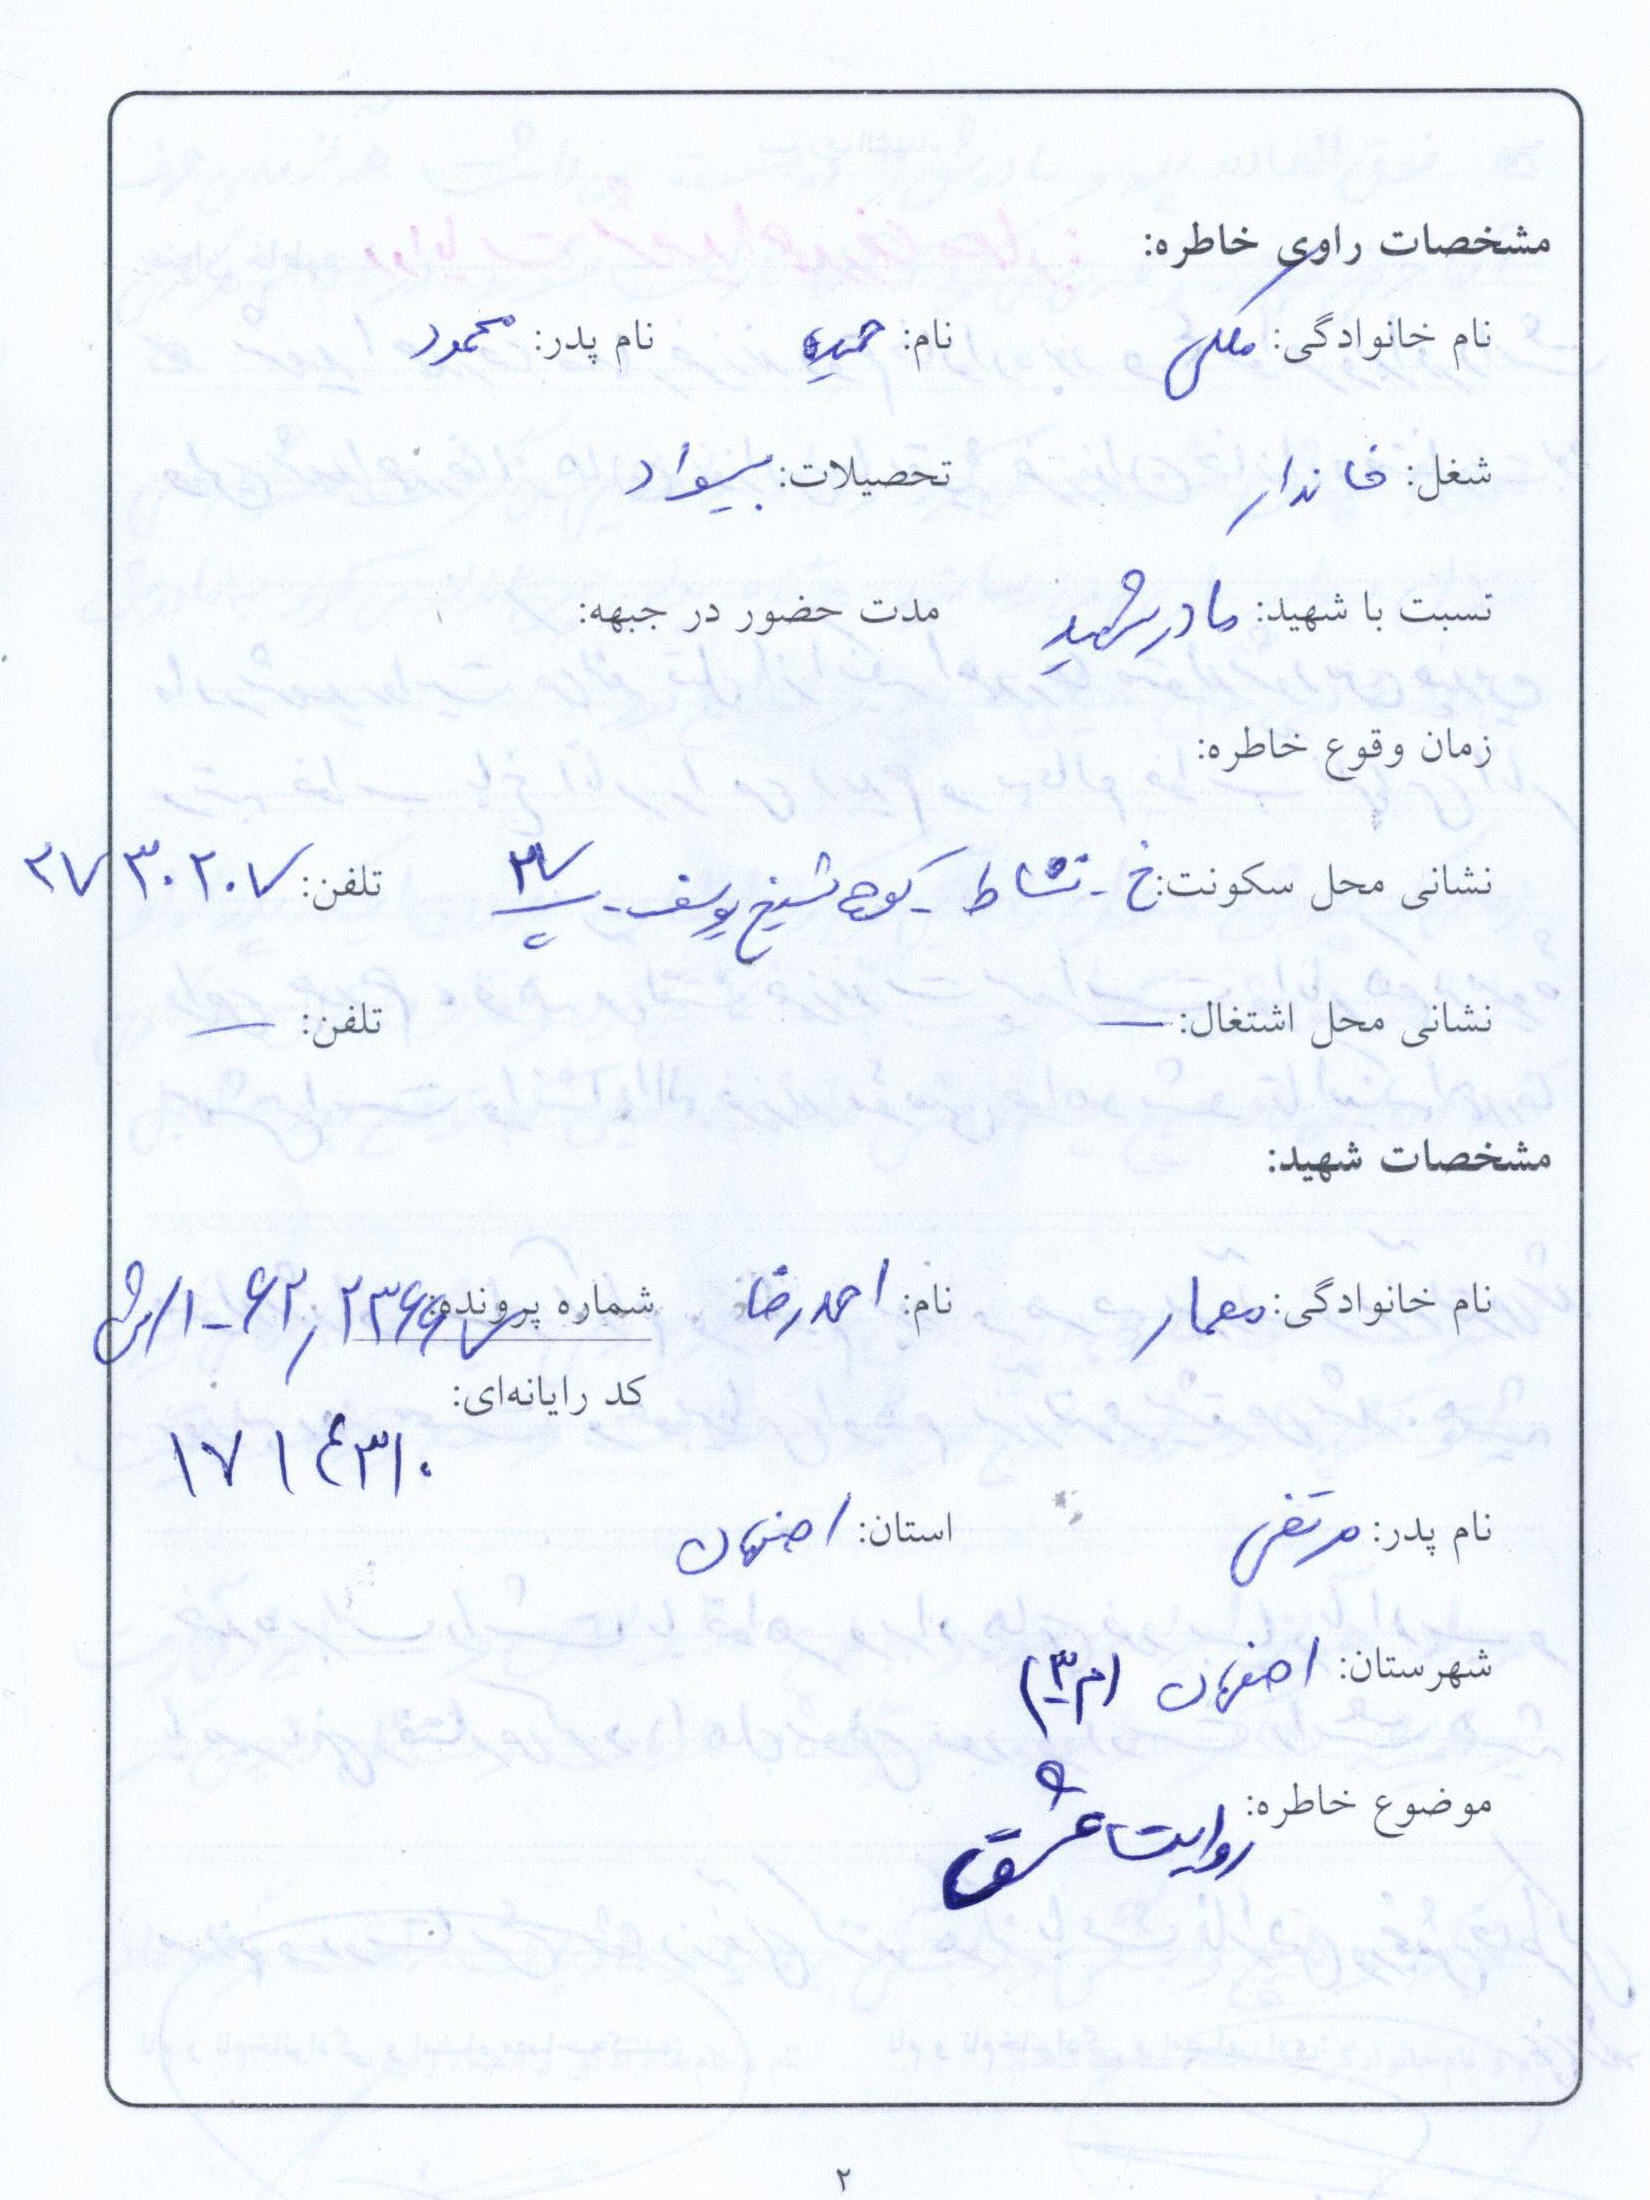 مشخصات راوی خاطره:
نام خانوادگی: ملکی نام: حمیده نام پدر: محمود
شغل: خانه‌دار تحصیلات: بیسواد
نسبت با شهید: مادر شهید مدت حضور در جبهه:
زمان وقوع خاطره:
نشانی محل سکونت: خ - نشاط - کوچه شیخ یوسف - پ ۲۷ تلفن: ۲۷۳۰۲۰۷
نشانی محل اشتغال: — تلفن: —
مشخصات شهید:
نام خانوادگی: معمار نام: احمدرضا شماره پرونده:
کد رایانه‌ای:
۱۷۱۴۳۱۰
نام پدر: مرتضی استان: اصفهان
شهرستان: اصفهان (م۳)
موضوع خاطره: روایت عشق
۲